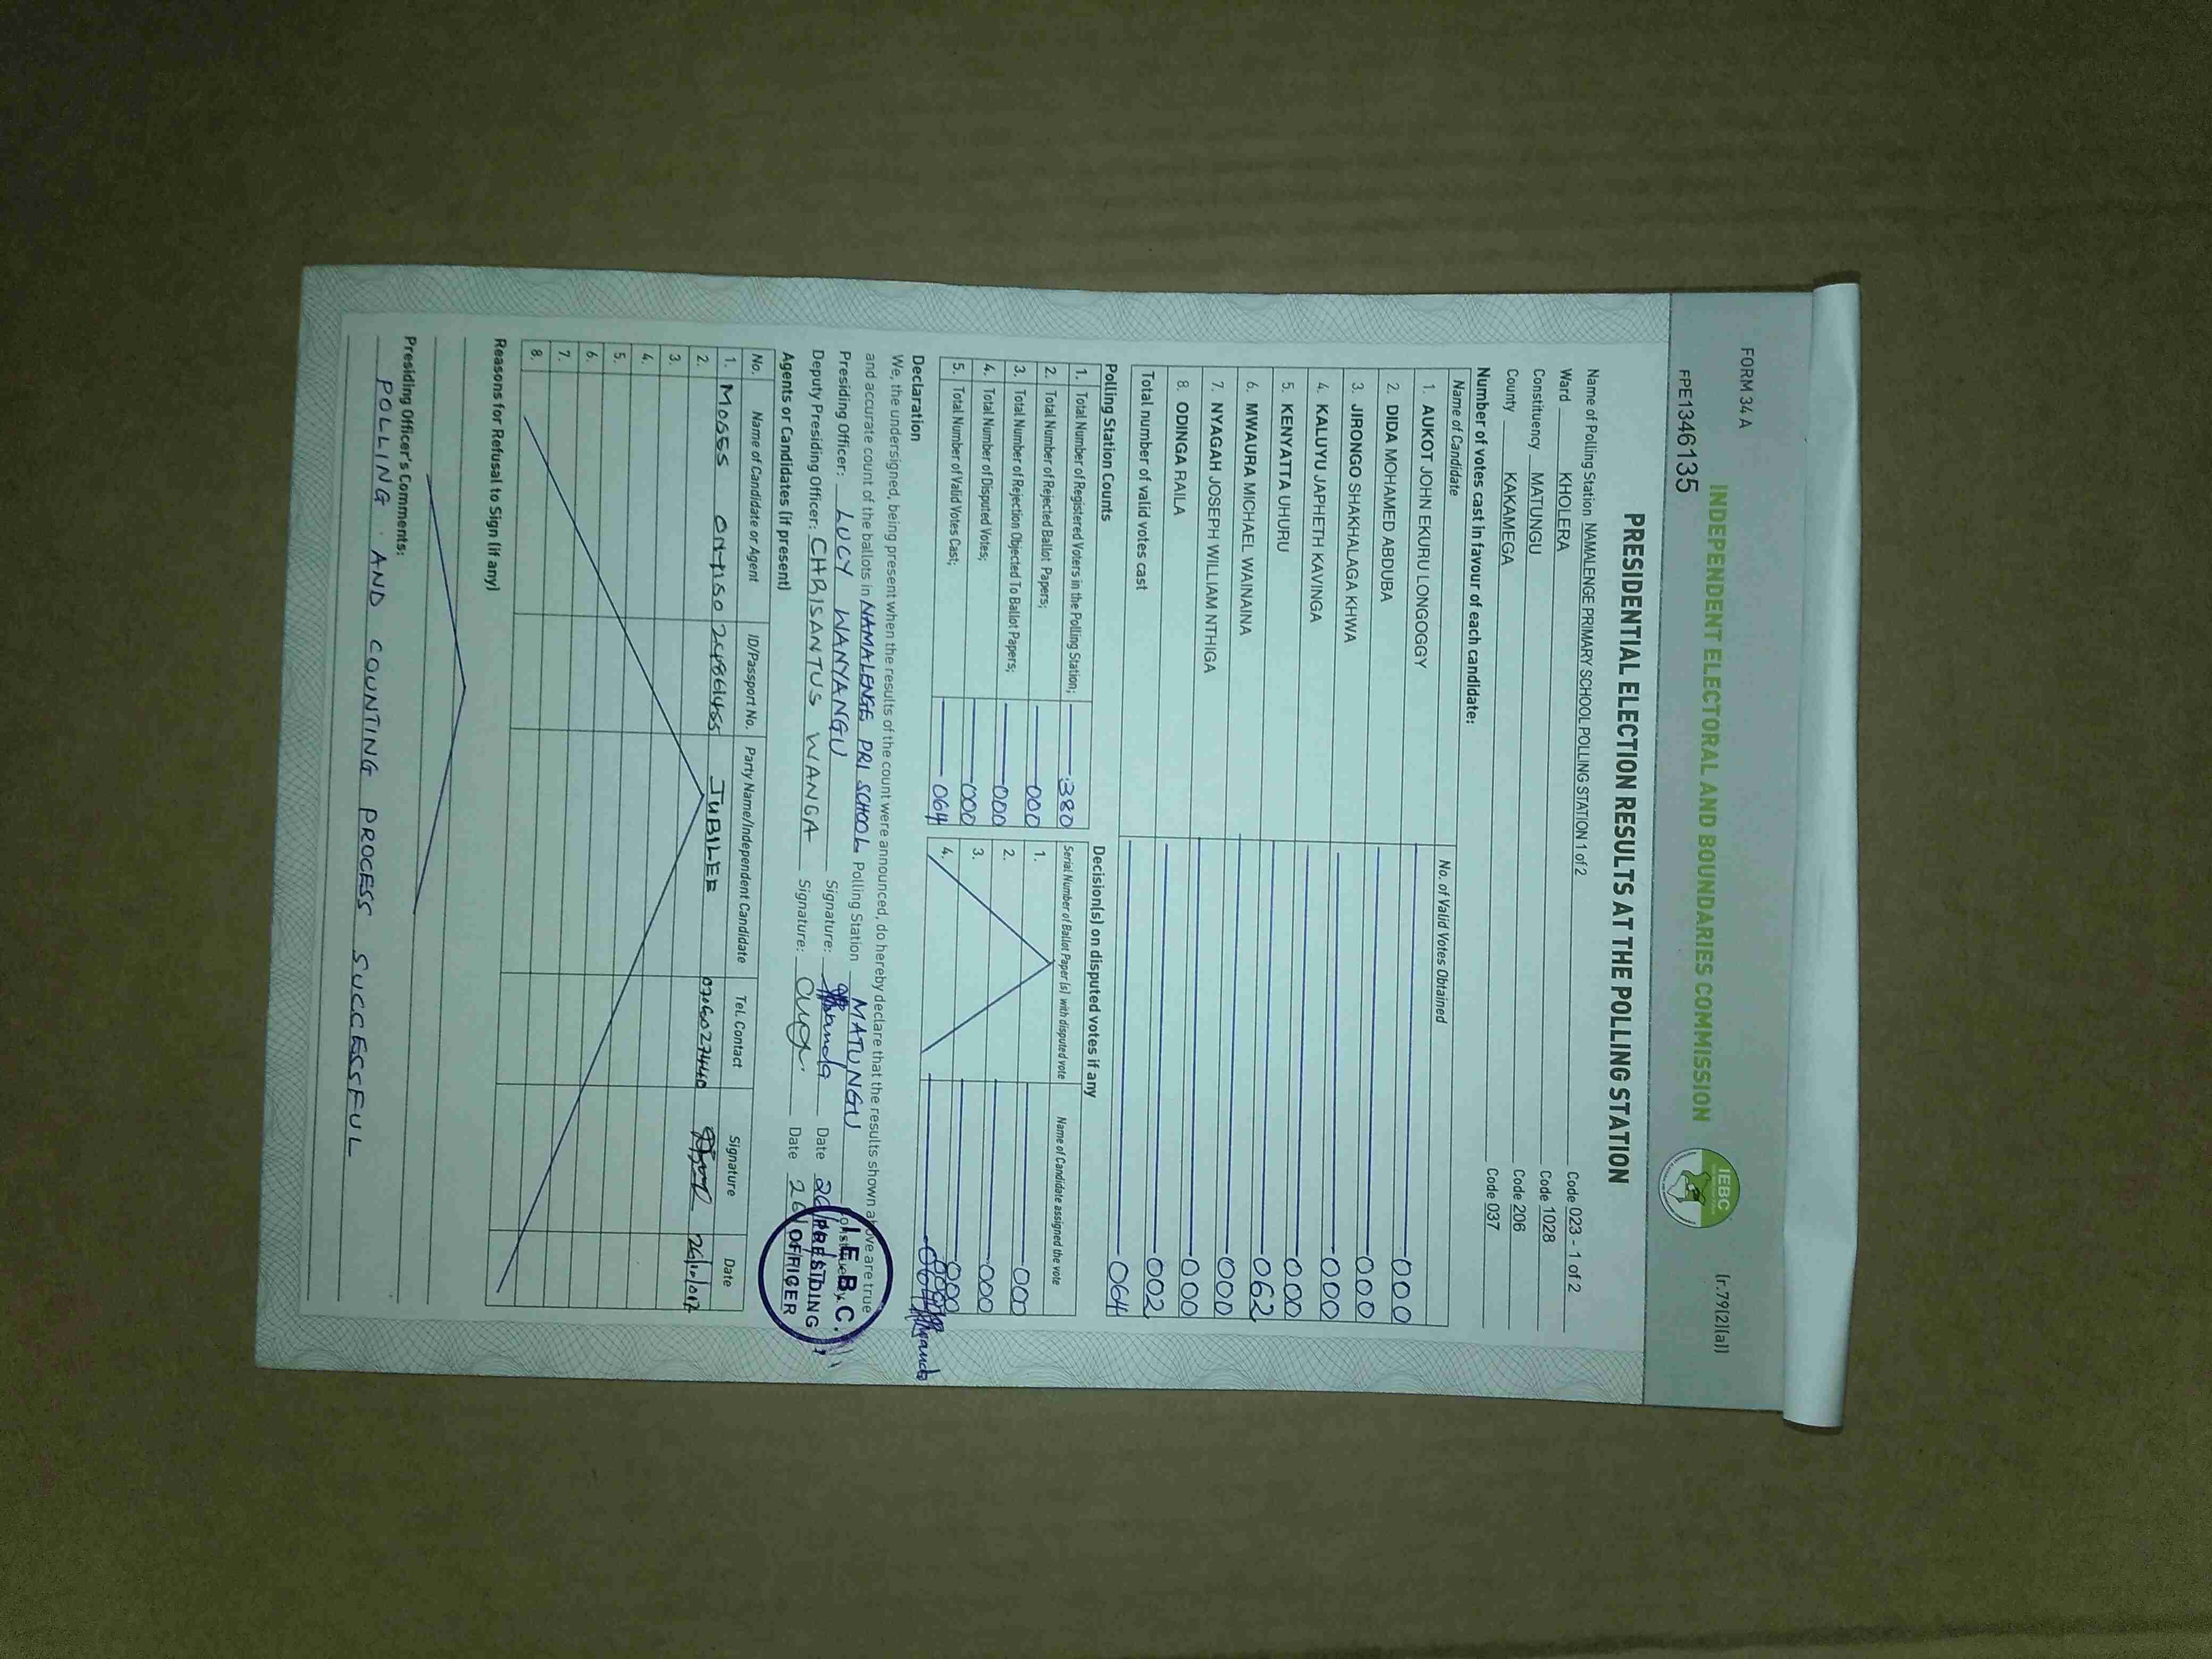 FORM 34 A
(r.79(2)(a))
INDEPENDENT ELECTORAL AND BOUNDARIES COMMISSION
IEBC
FPE1346135
PRESIDENTIAL ELECTION RESULTS AT THE POLLING STATION
Name of Polling Station NAMALENGE PRIMARY SCHOOL POLLING STATION 1 of 2 Code 023 - 1 of 2
Ward KHOLERA Code 1028
Constituency MATUNGU Code 206
County KAKAMEGA Code 037
Number of votes cast in favour of each candidate:
Name of Candidate No. of Valid Votes Obtained
1. AUKOT JOHN EKURU LONGOGGY 000
2. DIDA MOHAMED ABDUBA 000
3. JIRONGO SHAKHALAGA KHWA 000
4. KALUYU JAPHETH KAVINGA 000
5. KENYATTA UHURU 062
6. MWAURA MICHAEL WAINAINA 000
7. NYAGAH JOSEPH WILLIAM NTHIGA 000
8. ODINGA RAILA 002
Total number of valid votes cast 064
Polling Station Counts
1. Total Number of Registered Voters in the Polling Station; 380
2. Total Number of Rejected Ballot Papers; 000
3. Total Number of Rejection Objected To Ballot Papers; 000
4. Total Number of Disputed Votes; 000
5. Total Number of Valid Votes Cast; 064
Decision(s) on disputed votes if any
Serial Number of Ballot Paper (s) with disputed vote Name of Candidate assigned the vote
1. 000
2. 000
3. 000
4.
Declaration
We, the undersigned, being present when the results of the count were announced, do hereby declare that the results shown above are true
and accurate count of the ballots in NAMALENGE PRI SCHOOL Polling Station MATUNGU
Presiding Officer: LUCY WANYANGU Signature: Date
Deputy Presiding Officer: CHRISANTUS WANGA Signature: Date
I.E.B.C.
PRESIDING
OFFICER
Agents or Candidates (if present)
No. Name of Candidate or Agent ID/Passport No. Party Name/Independent Candidate Tel. Contact Signature Date
1. MOSES JUBILEE 0706027440 26/10/017
2.
3.
4.
5.
6.
7.
8.
Reasons for Refusal to Sign (if any)
Presiding Officer's Comments:
POLLING AND COUNTING PROCESS SUCCESSFUL